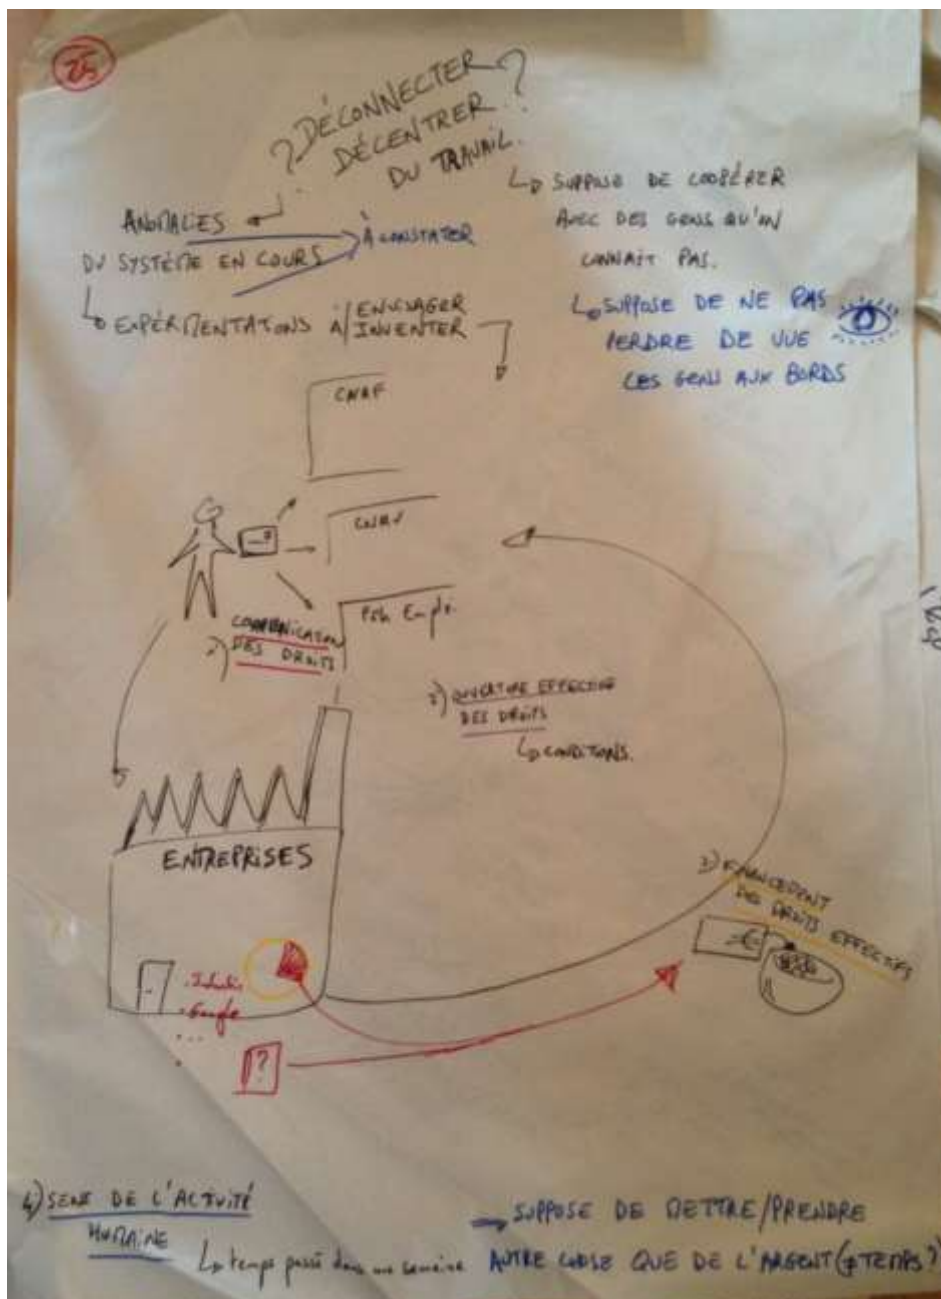 25
? DÉCONNECTER ?
DÉCENTRER
DU TRAVAIL.
ANOMALIES
DU SYSTÈME EN COURS
À CONSTATER
EXPÉRIMENTATIONS À/ENVISAGER
INVENTER
SUPPOSE DE COOPÉRER
AVEC DES GENS QU'ON
CONNAIT PAS.
SUPPOSE DE NE PAS
PERDRE DE VUE
LES GENS AUX BORDS
CNAF
CNAV
Pôle Emploi
1) COMMUNICATION
DES DROITS
2) OUVERTURE EFFECTIVE
DES DROITS
CONDITIONS.
ENTREPRISES
3) FINANCEMENT
DES DROITS EFFECTIFS
€
. Google
. ...
.
?
4) SENS DE L'ACTIVITÉ
HUMAINE
temps passé dans une semaine
SUPPOSE DE METTRE/PRENDRE
AUTRE CHOSE QUE DE L'ARGENT (≠ TEMPS ?)